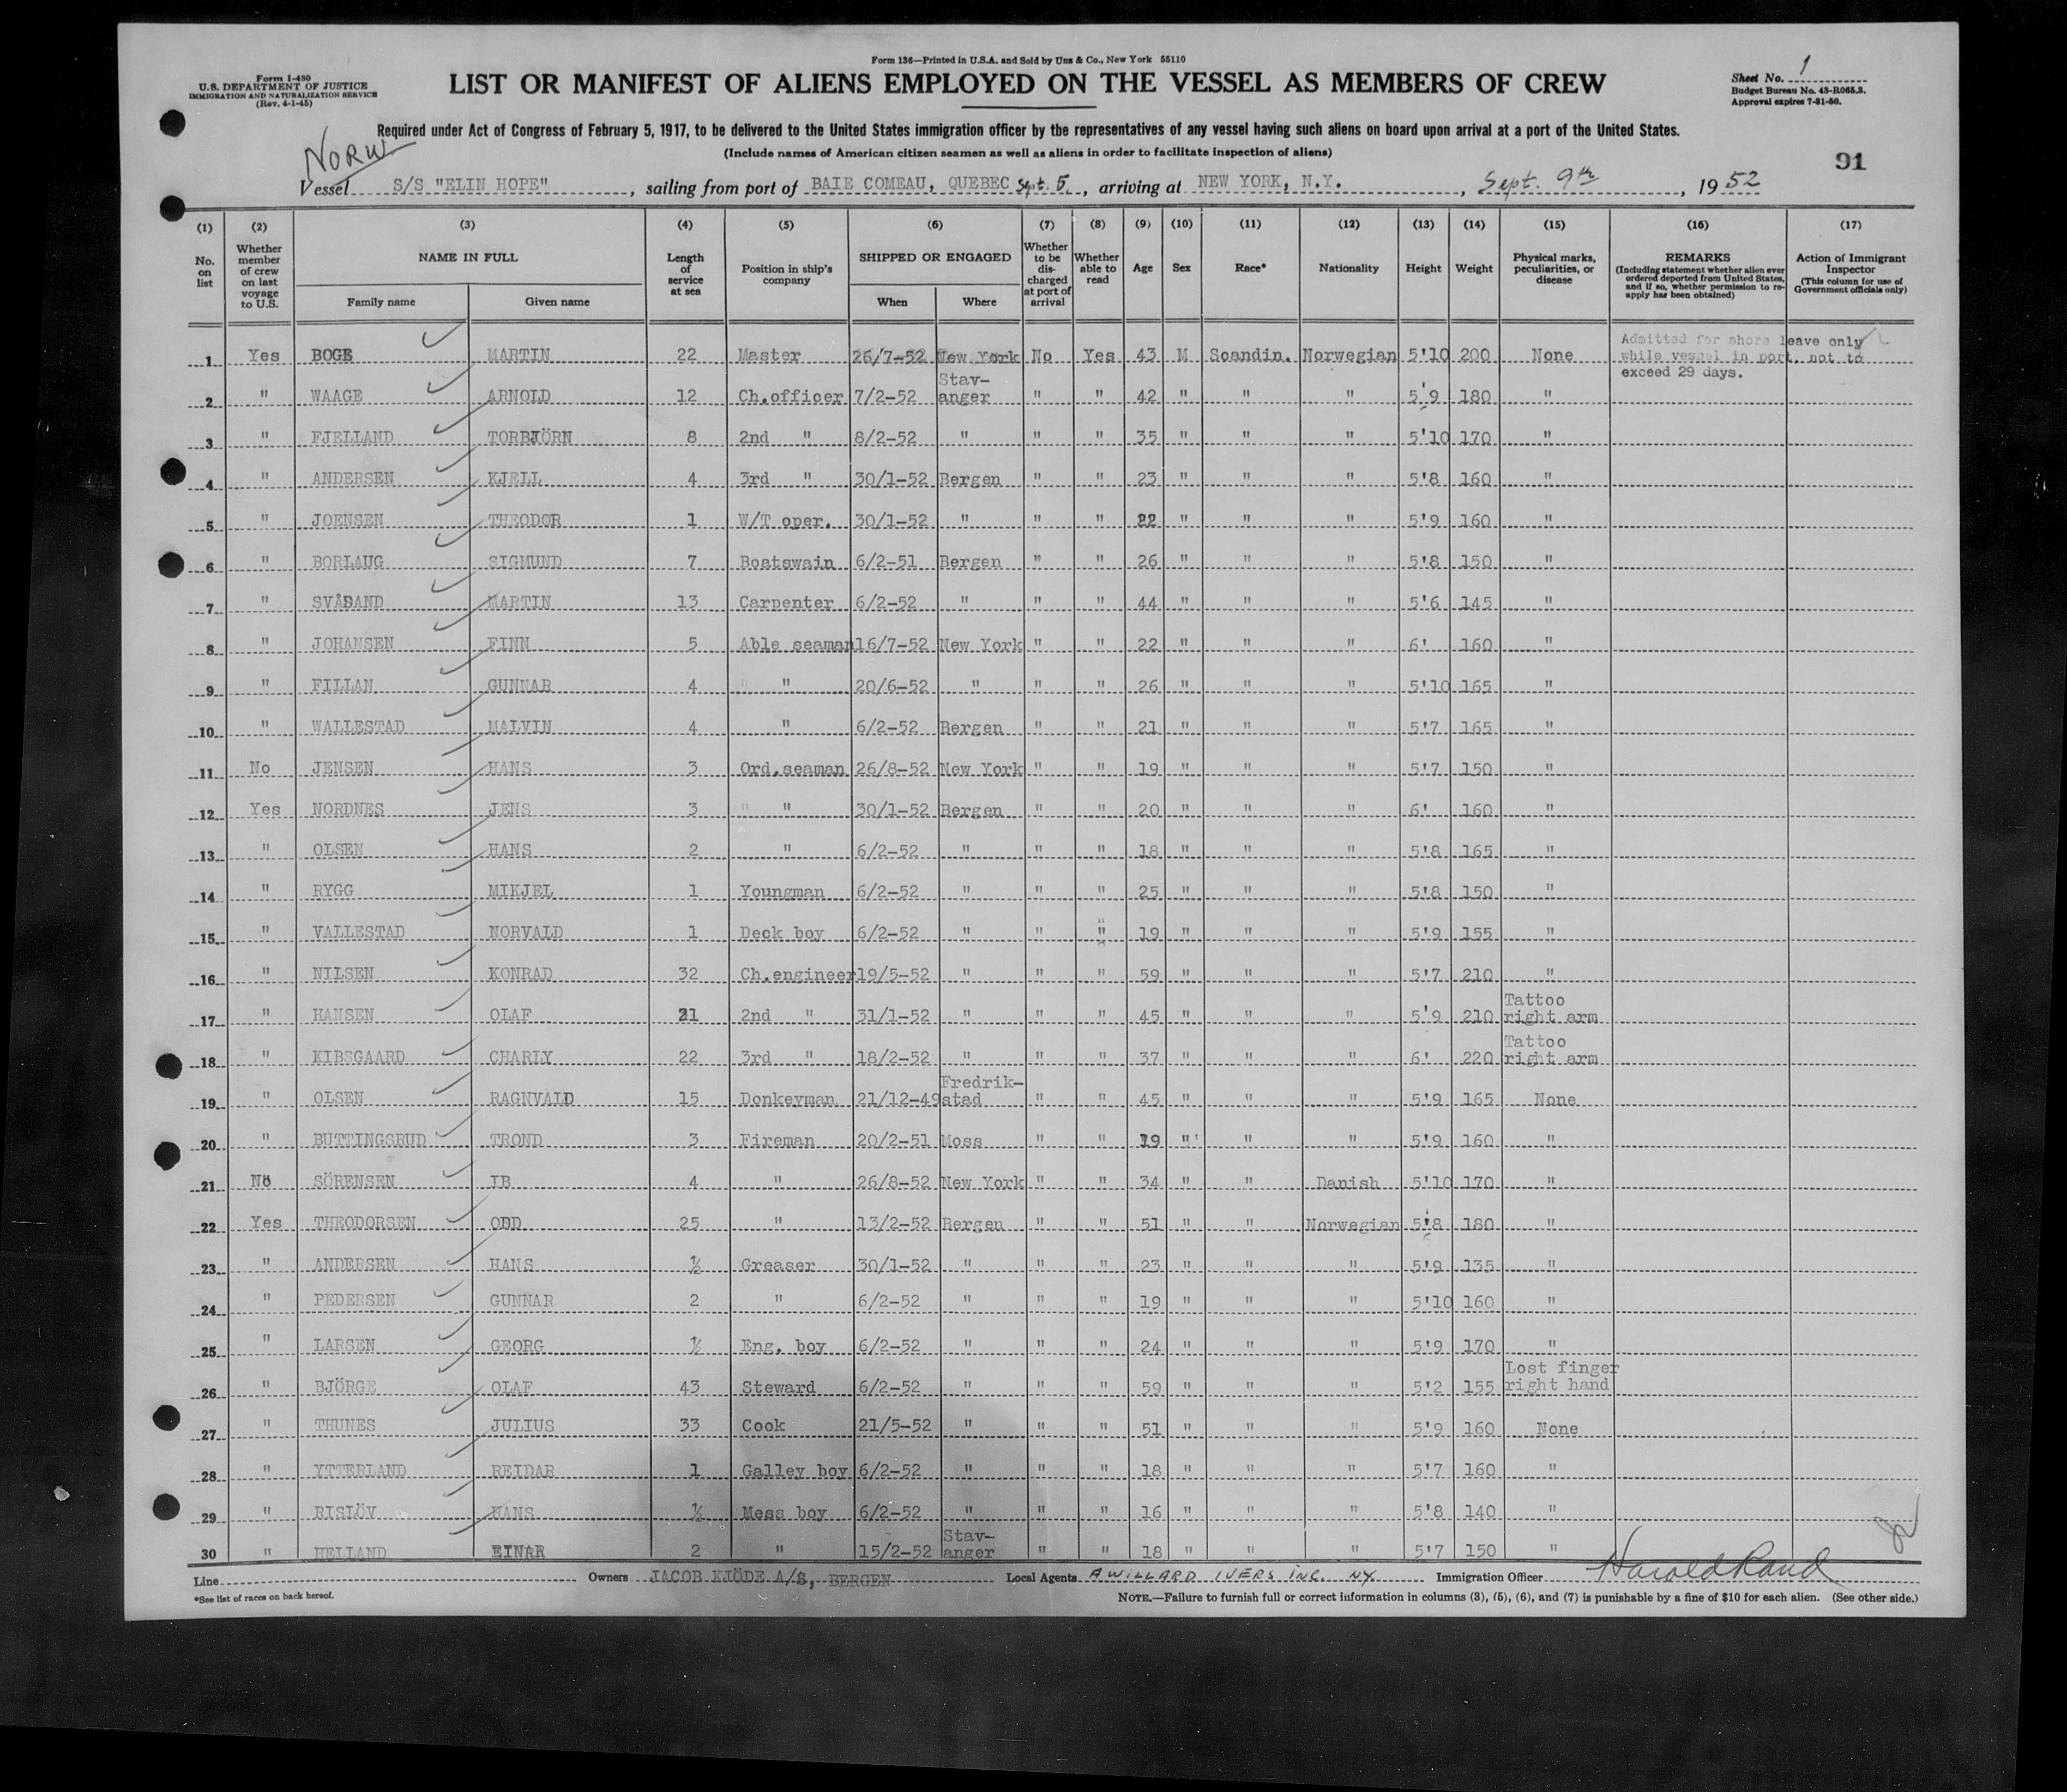 Form 136—Printed in U.S.A. and Sold by Unz & Co., New York 55110
Form I-480
U.S. DEPARTMENT OF JUSTICE
IMMIGRATION AND NATURALIZATION SERVICE
(Rev. 4-1-45)
LIST OR MANIFEST OF ALIENS EMPLOYED ON THE VESSEL AS MEMBERS OF CREW
Sheet No. 1
Budget Bureau No. 43-R065.3.
Approval expires 7-31-50.
Required under Act of Congress of February 5, 1917, to be delivered to the United States immigration officer by the representatives of any vessel having such aliens on board upon arrival at a port of the United States.
(Include names of American citizen seamen as well as aliens in order to facilitate inspection of aliens)
NORW
91
Vessel S/S "ELIN HOPE", sailing from port of BAIE COMEAU, QUEBEC Sept. 5, arriving at NEW YORK, N.Y., Sept. 9th, 1952
(1) (2) (3) (4) (5) (6) (7) (8) (9) (10) (11) (12) (13) (14) (15) (16) (17)
No. on list
Whether member of crew on last voyage to U.S.
NAME IN FULL
Family name Given name
Length of service at sea
Position in ship's company
SHIPPED OR ENGAGED
When Where
Whether to be discharged at port of arrival
Whether able to read
Age Sex Race* Nationality Height Weight
Physical marks, peculiarities, or disease
REMARKS
(Including statement whether alien ever ordered deported from United States, and if so, whether permission to reapply has been obtained)
Action of Immigrant Inspector
(This column for use of Government officials only)
1 Yes BOGE MARTIN 22 Master 26/7-52 New York No Yes 43 M Scandin. Norwegian 5'10 200 None Admitted for shore leave only while vessel in port, not to exceed 29 days.
2 " WAAGE ARNOLD 12 Ch.officer 7/2-52 Stav-anger " " 42 " " " 5'9 180 "
3 " FJELLAND TORBJÖRN 8 2nd " 8/2-52 " " " 35 " " " 5'10 170 "
4 " ANDERSEN KJELL 4 3rd " 30/1-52 Bergen " " 23 " " " 5'8 160 "
5 " JOENSEN THEODOR 1 W/T oper. 30/1-52 " " " 22 " " " 5'9 160 "
6 " BORLAUG SIGMUND 7 Boatswain 6/2-51 Bergen " " 26 " " " 5'8 150 "
7 " SVÅSAND MARTIN 13 Carpenter 6/2-52 " " " 44 " " " 5'6 145 "
8 " JOHANSEN FINN 5 Able seaman 16/7-52 New York " " 22 " " " 6' 160 "
9 " FILLAN GUNNAR 4 " " 20/6-52 " " " 26 " " " 5'10 165 "
10 " WALLESTAD MALVIN 4 " 6/2-52 Bergen " " 21 " " " 5'7 165 "
11 No JENSEN HANS 3 Ord.seaman 26/8-52 New York " " 19 " " " 5'7 150 "
12 Yes NORDNES JENS 3 " " 30/1-52 Bergen " " 20 " " " 6' 160 "
13 " OLSEN HANS 2 " 6/2-52 " " " 18 " " " 5'8 165 "
14 " RYGG MIKJEL 1 Youngman 6/2-52 " " " 25 " " " 5'8 150 "
15 " VALLESTAD NORVALD 1 Deck boy 6/2-52 " " " 19 " " " 5'9 155 "
16 " NILSEN KONRAD 32 Ch.engineer 19/5-52 " " " 59 " " " 5'7 210 "
17 " HANSEN OLAF 21 2nd " 31/1-52 " " " 45 " " " 5'9 210 Tattoo right arm
18 " KIBSGAARD CHARLY 22 3rd " 18/2-52 " " " 37 " " " 6' 220 Tattoo right arm
19 " OLSEN RAGNVALD 15 Donkeyman 21/12-49 Fredrik-stad " " 45 " " " 5'9 165 None
20 " BUTTINGSRUD TROND 3 Fireman 20/2-51 Moss " " 19 " " " 5'9 160 "
21 No SÖRENSEN IB 4 " 26/8-52 New York " " 34 " " Danish 5'10 170 "
22 Yes THEODORSEN ODD 25 " 13/2-52 Bergen " " 51 " " Norwegian 5'8 180 "
23 " ANDERSEN HANS ½ Greaser 30/1-52 " " " 23 " " " 5'9 135 "
24 " PEDERSEN GUNNAR 2 " 6/2-52 " " " 19 " " " 5'10 160 "
25 " LARSEN GEORG ½ Eng. boy 6/2-52 " " " 24 " " " 5'9 170 "
26 " BJÖRGE OLAF 43 Steward 6/2-52 " " " 59 " " " 5'2 155 Lost finger right hand
27 " THUNES JULIUS 33 Cook 21/5-52 " " " 51 " " " 5'9 160 None
28 " YTTERLAND REIDAR 1 Galley boy 6/2-52 " " " 18 " " " 5'7 160 "
29 " RISLÖV HANS ½ Mess boy 6/2-52 " " " 16 " " " 5'8 140 "
30 " HELLAND EINAR 2 " 15/2-52 Stav-anger " " 18 " " " 5'7 150 "
Line Owners JACOB KJÖDE A/S, BERGEN Local Agents A WILLARD IVERS INC. NY Immigration Officer Harold Rand
*See list of races on back hereof.
NOTE.—Failure to furnish full or correct information in columns (3), (5), (6), and (7) is punishable by a fine of $10 for each alien. (See other side.)